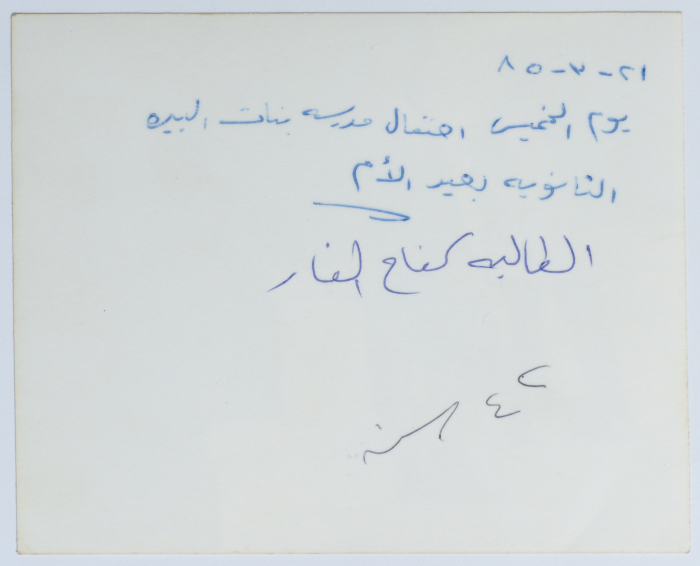 ٢١-٣-٨٥
يوم الخميس احتفال مدرسه بنات البيره
الثانويه بعيد الأم
الطالبه كفاح الفار